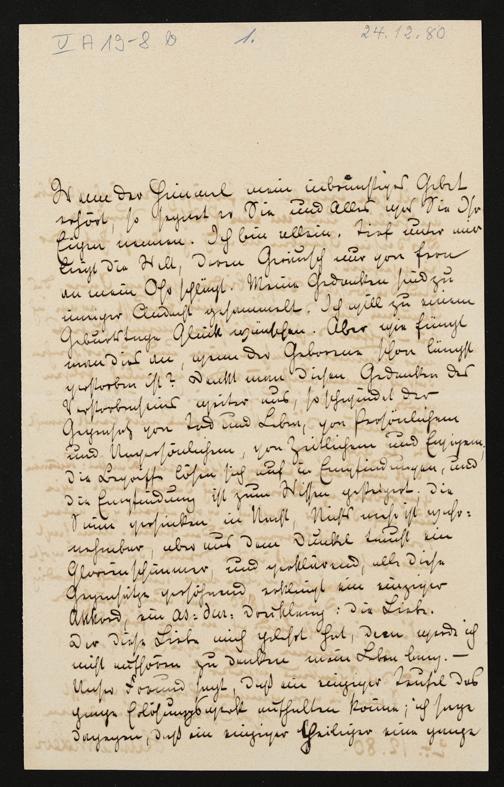 V A 19-8 b 1. 24.12.80
Wenn der Himmel mein inbrünstiges Gebet
erhört, so segnet er Sie und Alles was Sie Ihr
Eigen nennen. Ich bin allein. Tief unter mir
liegt die Welt, deren Geräusch nur von fern
an mein Ohr schlägt. Meine Gedanken sind zu
inniger Andacht gesammelt. Ich will zu einem
Geburtstage Glück wünschen. Aber wie fängt
man dies an, wenn der Geborene schon längst
verstorben ist? Denkt man diesen Gedanken des
Verstorbenseins weiter aus, so schwindet der
Gegensatz von Tod und Leben, von Persönlichem
und Unpersönlichem, von Zeitlichem und Ewigem,
die Begriffe lösen sich auf in Empfindungen, und
die Empfindung ist zum Wissen gesteigert. Die
Sinne versinken in Nacht, Nichts mehr ist wahr=
nehmbar, aber aus dem Dunkel taucht ein
Glorienschimmer, und verklärend, alle diese
Gegensätze versöhnend, erklingt ein einziger
Akkord, ein as=dur=Dreiklang: die Liebe.
Der diese Liebe mich gelehrt hat, dem werde ich
nicht aufhören zu danken mein Leben lang. —
Unser Freund sagt, daß ein einziger Teufel das
ganze Erlösungswerk aufhalten könne; ich sage
dagegen, daß ein einziger Heiliger eine ganze